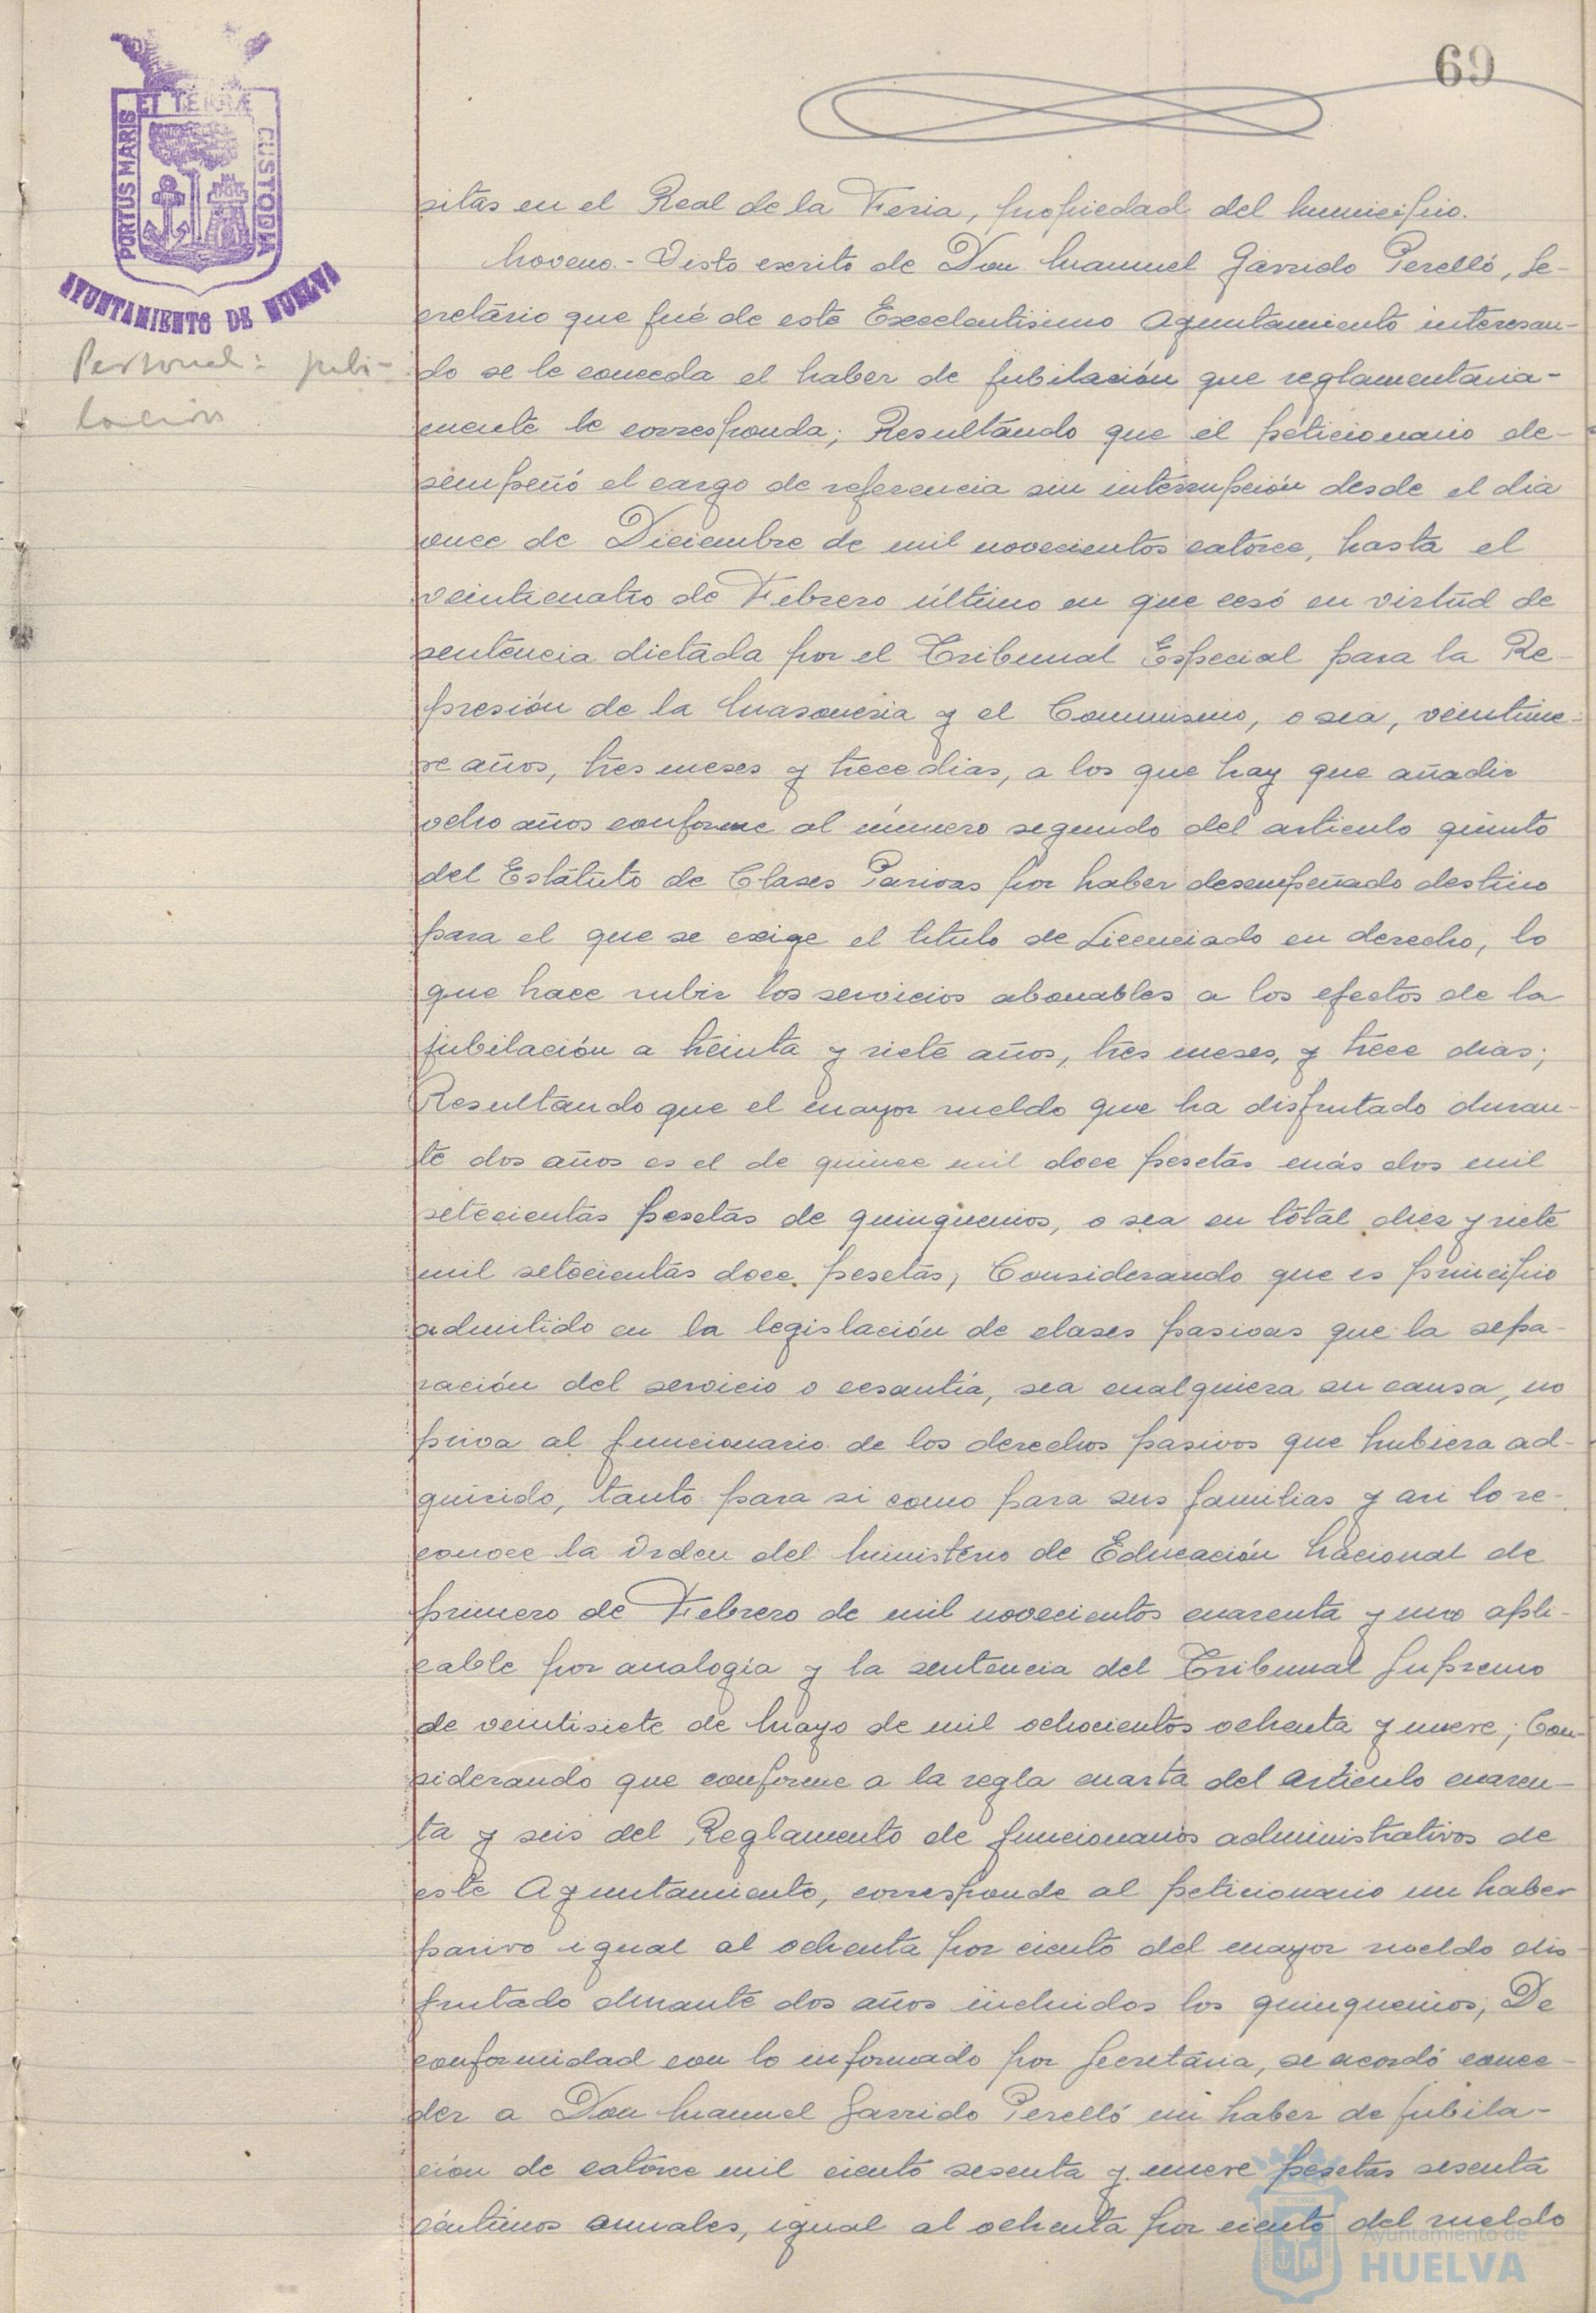 69
ET TERRÆ
PORTUS MARIS
CUSTODIA
AYUNTAMIENTO DE HUELVA
Personal: jubi-
lación
sitas en el Real de la Feria, propiedad del Municipio.
Noveno.- Visto escrito de Don Manuel Garrido Perelló, Se-
cretário que fué de este Excelentisimo Ayuntamiento interesan-
do se le conceda el haber de jubilación que reglamentaria-
mente le corresponda; Resultando que el peticionario de-
sempeñó el cargo de referencia sin interrupción desde el dia
once de Diciembre de mil novecientos catorce, hasta el
veinticuatro de Febrero último en que cesó en virtud de
sentencia dictada por el Tribunal Especial para la Re-
presión de la Masoneria y el Comunismo, o sea, veintinue-
ve años, tres meses y trece dias, a los que hay que añadir
ocho años conforme al número segundo del articulo quinto
del Estatuto de Clases Pasivas por haber desempeñado destino
para el que se exige el titulo de Licenciado en derecho, lo
que hace subir los servicios abonables a los efectos de la
jubilación a treinta y siete años, tres meses, y trece dias;
Resultando que el mayor sueldo que ha disfrutado duran-
te dos años es el de quince mil doce pesetas más dos mil
setecientas pesetas de quinquenios, o sea en total diez y siete
mil setecientas doce pesetas; Considerando que es principio
admitido en la legislación de clases pasivas que la sepa-
ración del servicio o cesantia, sea cualquiera su causa, no
priva al funcionario de los derechos pasivos que hubiera ad-
quirido, tanto para si como para sus familias y asi lo re-
conoce la Orden del Ministerio de Educación Nacional de
primero de Febrero de mil novecientos cuarenta y uno apli-
cable por analogia y la sentencia del Tribunal Supremo
de veintisiete de Mayo de mil ochocientos ochenta y nueve; Con-
siderando que conforme a la regla cuarta del articulo cuaren-
ta y seis del Reglamento de funcionarios administrativos de
este Ayuntamiento, corresponde al peticionario un haber
pasivo igual al ochenta por ciento del mayor sueldo dis-
frutado durante dos años incluidos los quinquenios; De
conformidad con lo informado por Secretaria, se acordó conce-
der a Don Manuel Garrido Perelló un haber de jubila-
cion de catorce mil ciento sesenta y nueve pesetas sesenta
céntimos anuales, igual al ochenta por ciento del sueldo
Ayuntamiento de
HUELVA